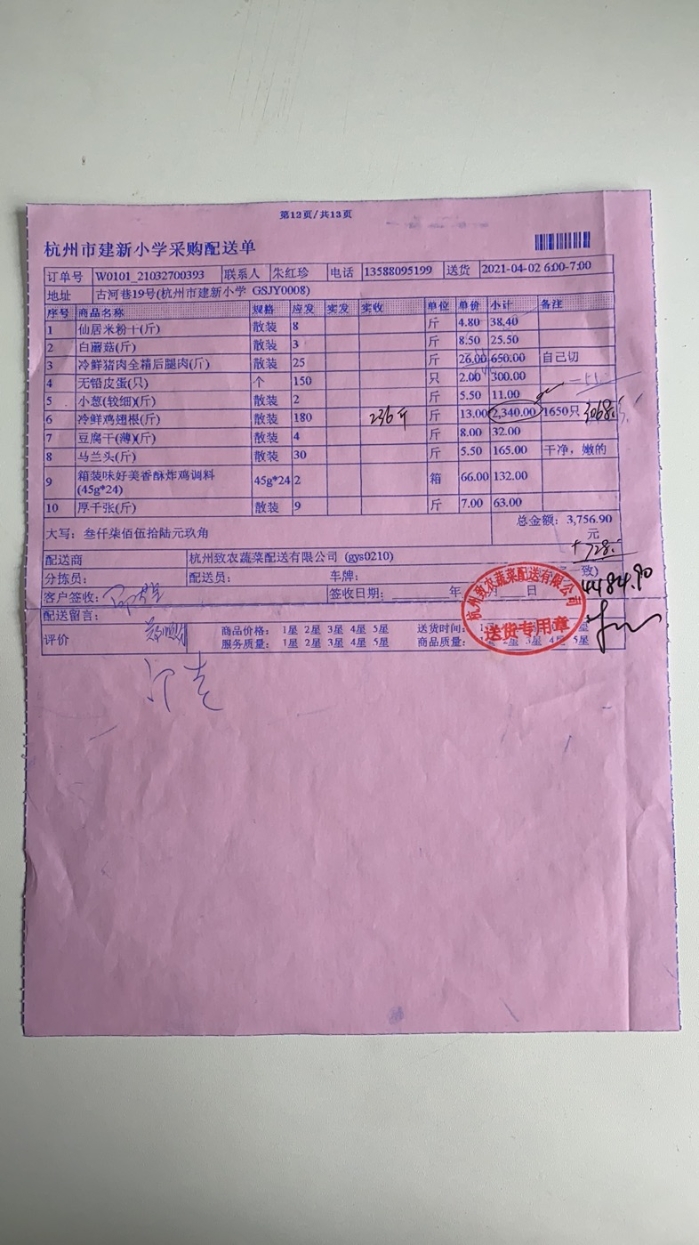 第12页/共13页
杭州市建新小学采购配送单
订单号 W0101_21032700393 联系人 朱红珍 电话 13588095199 送货 2021-04-02 6:00-7:00
地址 古河巷19号(杭州市建新小学 GSJY0008)
序号 商品名称 规格 应发 实发 实收 单位 单价 小计 备注
1 仙居米粉干(斤) 散装 8 斤 4.80 38.40
2 白蘑菇(斤) 散装 3 斤 8.50 25.50
3 冷鲜猪肉全精后腿肉(斤) 散装 25 斤 26.00 650.00 自己切
4 无铅皮蛋(只) 个 150 只 2.00 300.00
5 小葱(较细)(斤) 散装 2 斤 5.50 11.00
6 冷鲜鸡翅根(斤) 散装 180 236斤 斤 13.00 2,340.00 1650只 3068.
7 豆腐干(薄)(斤) 散装 4 斤 8.00 32.00
8 马兰头(斤) 散装 30 斤 5.50 165.00 干净，嫩的
9 箱装味好美香酥炸鸡调料 45g*24 2 箱 66.00 132.00
(45g*24)
10 厚千张(斤) 散装 9 斤 7.00 63.00
大写：叁仟柒佰伍拾陆元玖角 总金额：3,756.90
元
+728.
配送商 杭州致农蔬菜配送有限公司 (gys0210)
分拣员： 配送员： 车牌： 一致)
4484.90
客户签收： 签收日期： 年 日
配送留言：
评价 商品价格： 1星 2星 3星 4星 5星 送货时间：
服务质量： 1星 2星 3星 4星 5星 商品质量： 星 2星 3星 4星 5星
杭州致农蔬菜配送有限公司
送货专用章